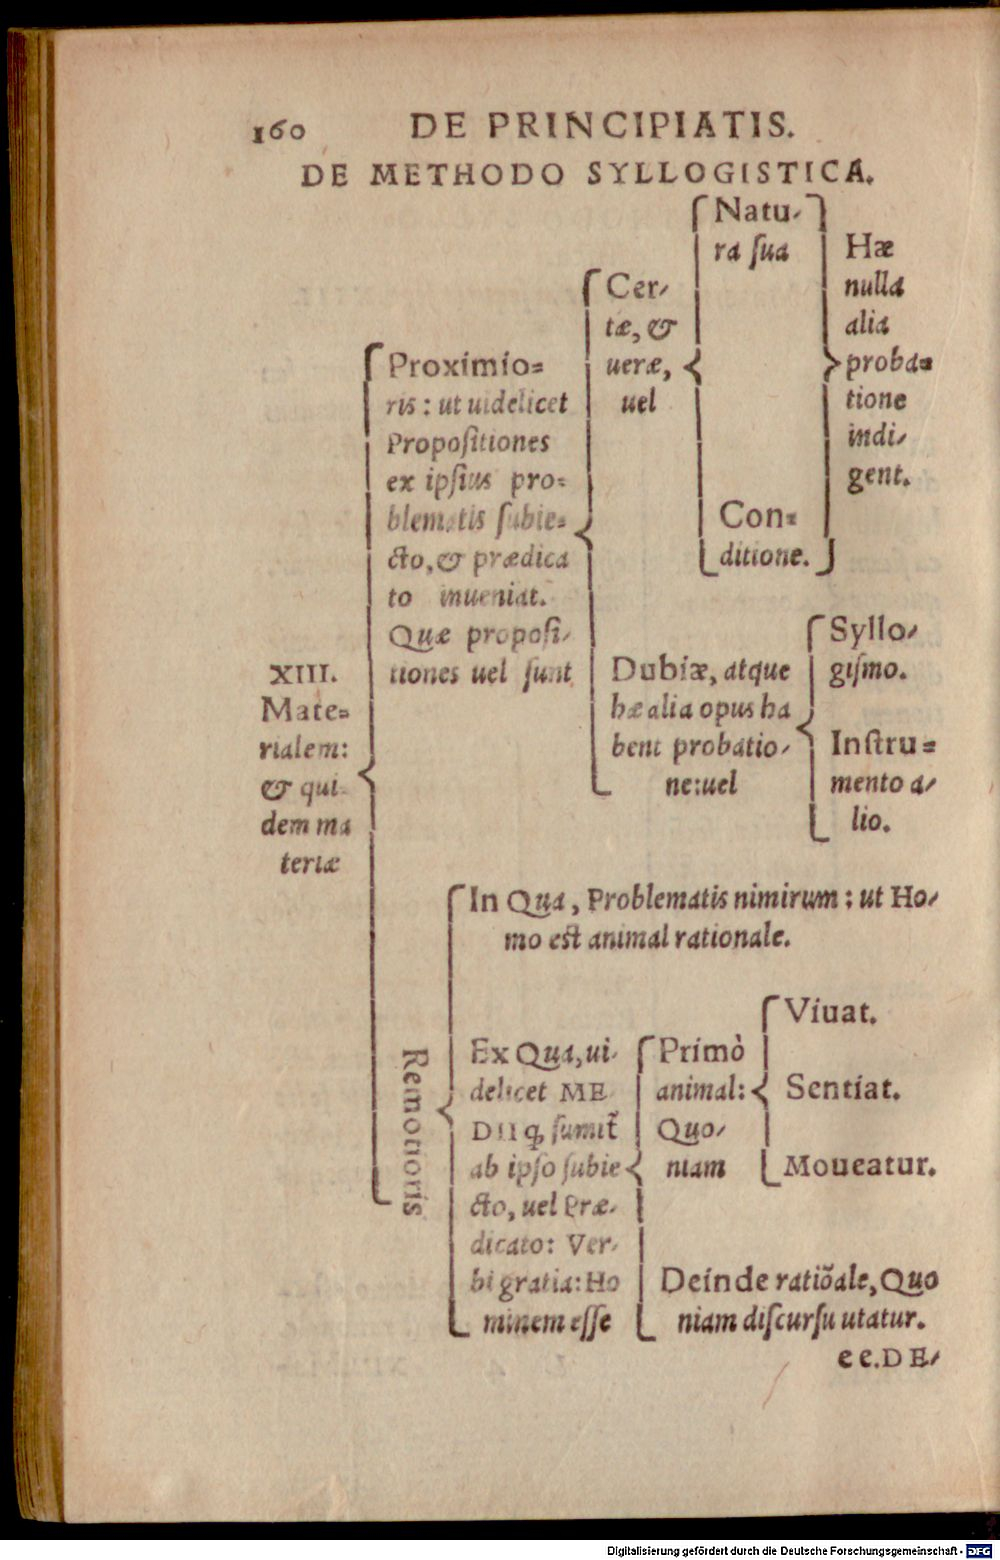 160 DE PRINCIPIATIS.
DE METHODO SYLLOGISTICA.
XIII.
Mate=
rialem:
& qui
dem ma
teriæ
Proximio=
ris: ut uidelicet
Propositiones
ex ipsius pro=
blematis subie=
cto, & prædica
to inueniat.
Quæ proposi/
tiones uel sunt
Cer/
tæ, &
ueræ,
uel
Natu/
ra sua
Con=
ditione.
Hæ
nulla
alia
proba=
tione
indi/
gent.
Dubiæ, atque
hæ alia opus ha
bent probatio/
ne: uel
Syllo/
gismo.
Instru=
mento a/
lio.
Remotioris
In Qua, Problematis nimirum: ut Ho/
mo est animal rationale.
Ex Qua, ui/
delicet ME
DIIꝗ sumit̃
ab ipso subie
cto, uel Præ/
dicato: Ver/
bi gratia: Ho
minem esse
Primò
animal:
Quo/
niam
Viuat.
Sentiat.
Moueatur.
Deinde ratiõale, Quo
niam discursu utatur.
e e. DE/
Digitalisierung gefördert durch die Deutsche Forschungsgemeinschaft - DFG